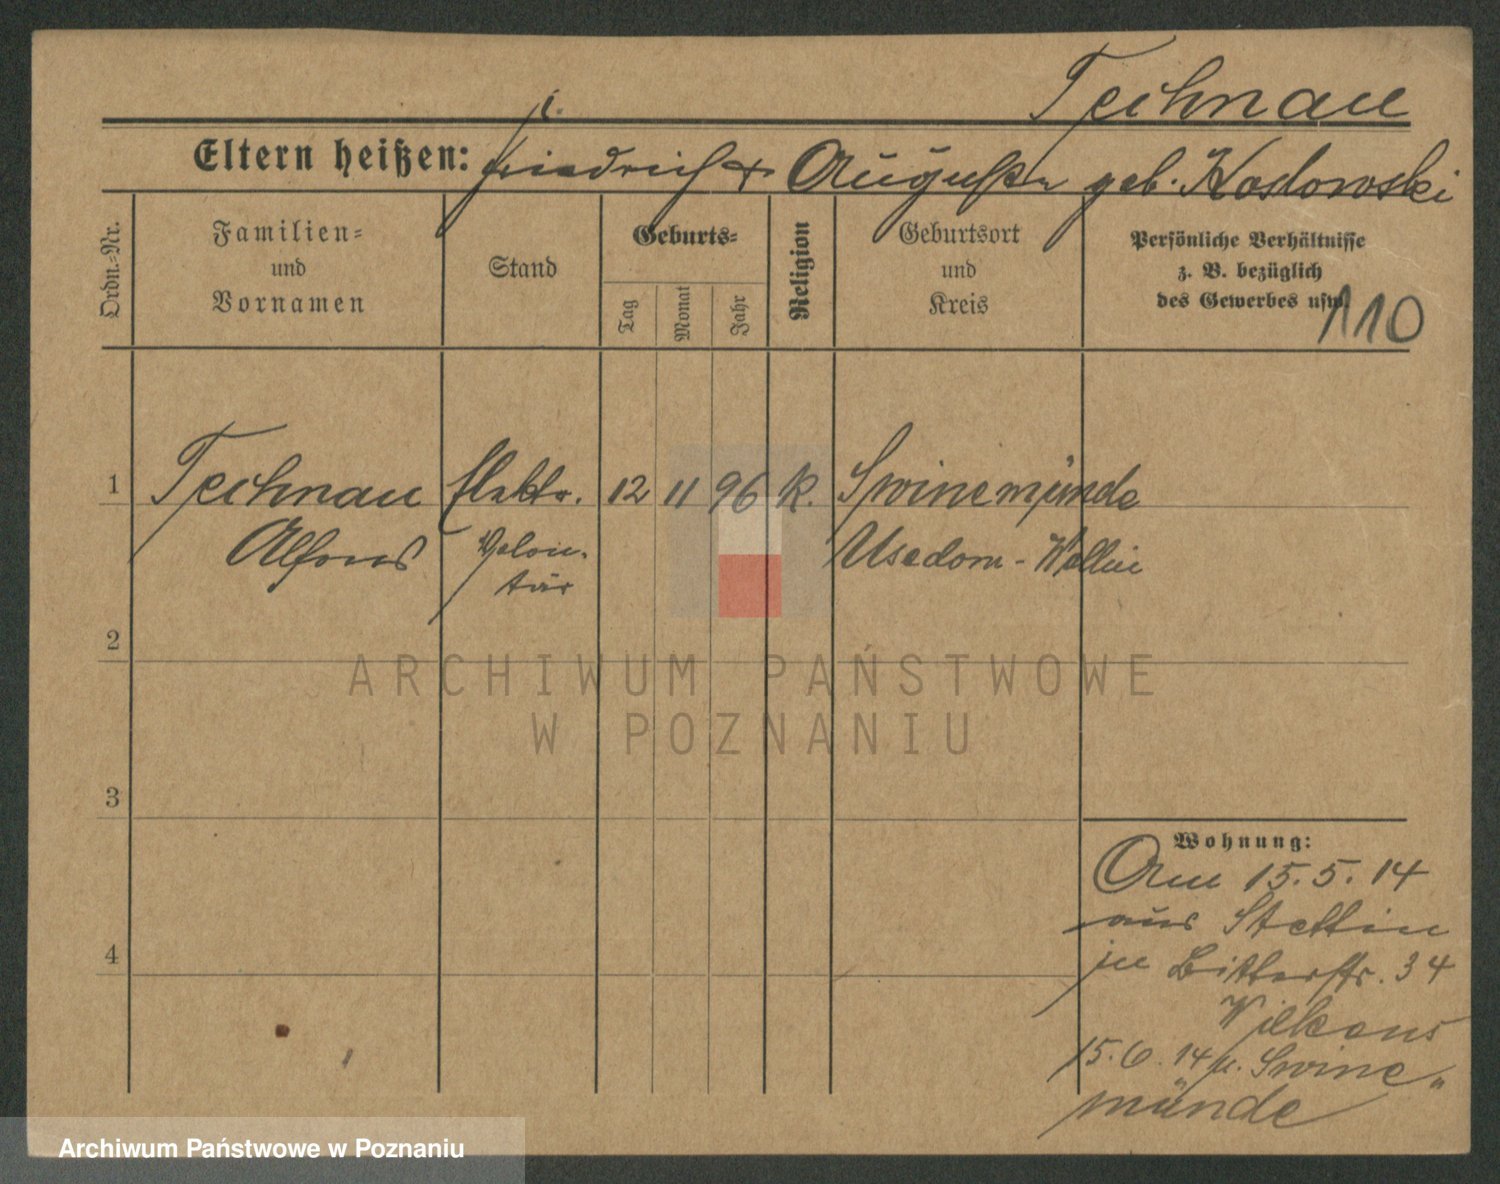 Technau
j.
Eltern heißen: Friedrich & Auguste geb. Koslowski
Ordn.-Nr.
Familien=
und
Vornamen
Stand
Geburts=
Tag
Monat
Jahr
Religion
Geburtsort
und
Kreis
Persönliche Verhältnisse
z. B. bezüglich
des Gewerbes usw.
110
1 Technau Elektr. 12 11 96 K. Swinemünde
Alfons Volon-
tär
Usedom - Wollin
2
ARCHIWUM PAŃSTWOWE
W POZNANIU
3
Wohnung:
15.5.14
aus Stettin
in Bitterstr. 34
4
15.6.14 n. Swine„
münde
Archiwum Państwowe w Poznaniu